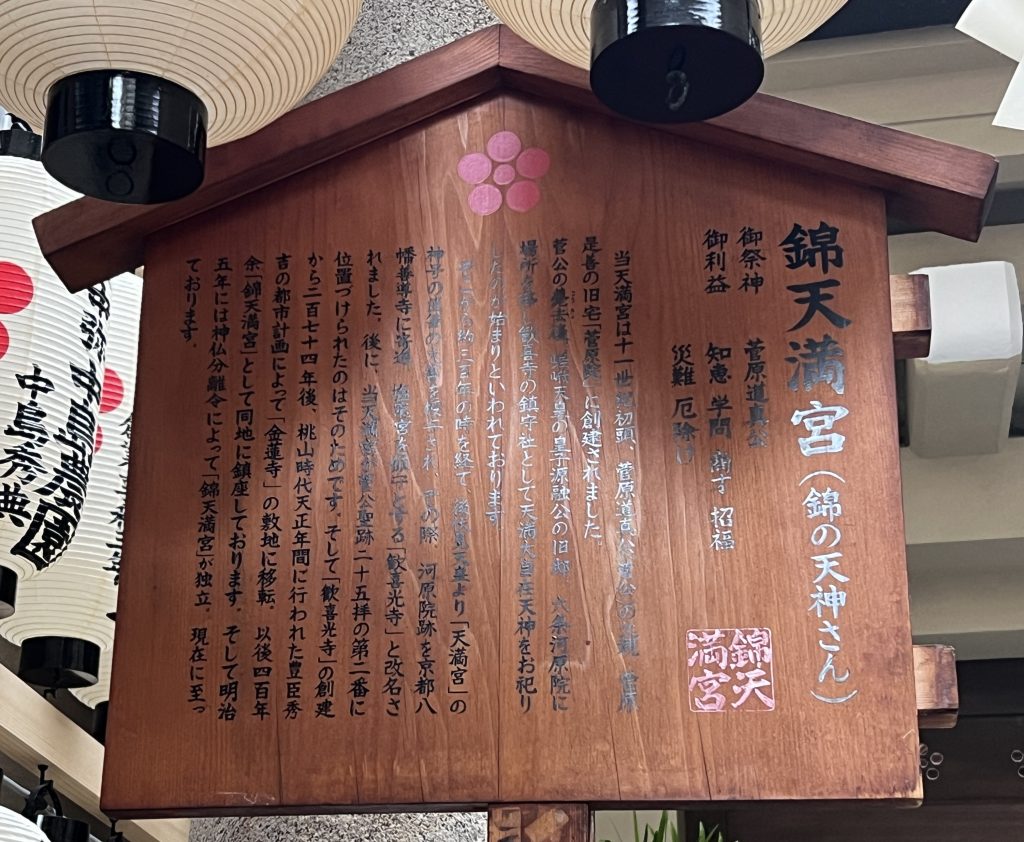 錦天満宮(錦の天神さん)
御祭神 菅原道真公
御利益 知恵 学問 商才 招福
災難 厄除け
当天満宮は十一世紀初頭、菅原道真公 菅原
是善の旧宅「菅原院」に創建されました。
菅公の薨去後、嵯峨天皇の皇子源融公の旧邸 六条河原院に
場所を移し歓喜寺の鎮守社として天満大自在天神をお祀り
したのが始まりといわれております
そこから約三百年の時を経て、後伏見天皇より「天満宮」の
神号の 河原院跡を京都八
幡善導寺に寄進 「歓喜光寺」と改名さ
れました。後に、当天満宮が菅公聖跡二十五拝の第二番に
位置づけられたのはそのためです。そして「歓喜光寺」の創建
から二百七十四年後、桃山時代天正年間に行われた豊臣秀
吉の都市計画によって「金蓮寺」の敷地に移転。以後四百年
余「錦天満宮」として同地に鎮座しております。そして明治
五年には神仏分離令によって「錦天満宮」が独立、現在に至っ
ております。
錦天
満宮
伊豆農園
中島秀典